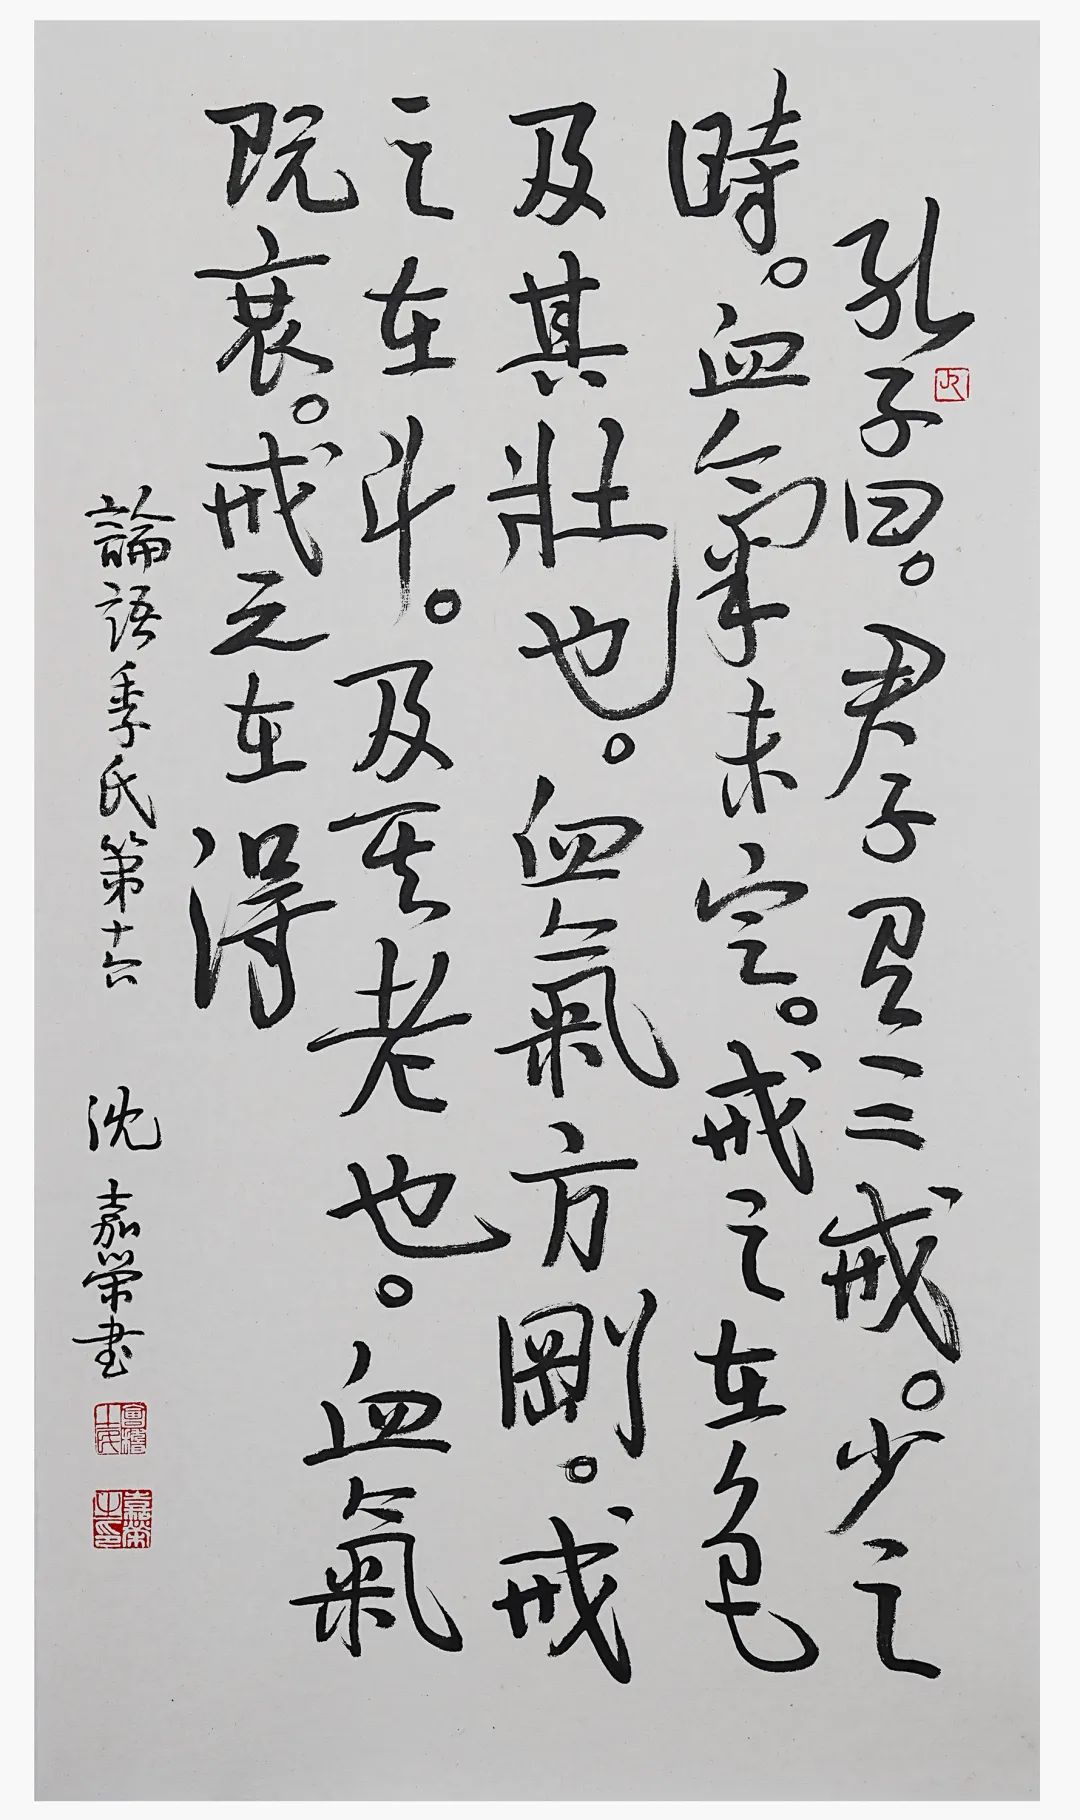 孔子曰。君子有三戒。少之
時。血氣未定。戒之在色
及其壯也。血氣方剛。戒
之在斗。及其老也。血氣
既衰。戒之在得
論語季氏第十六
沈嘉榮書
嘉榮之印